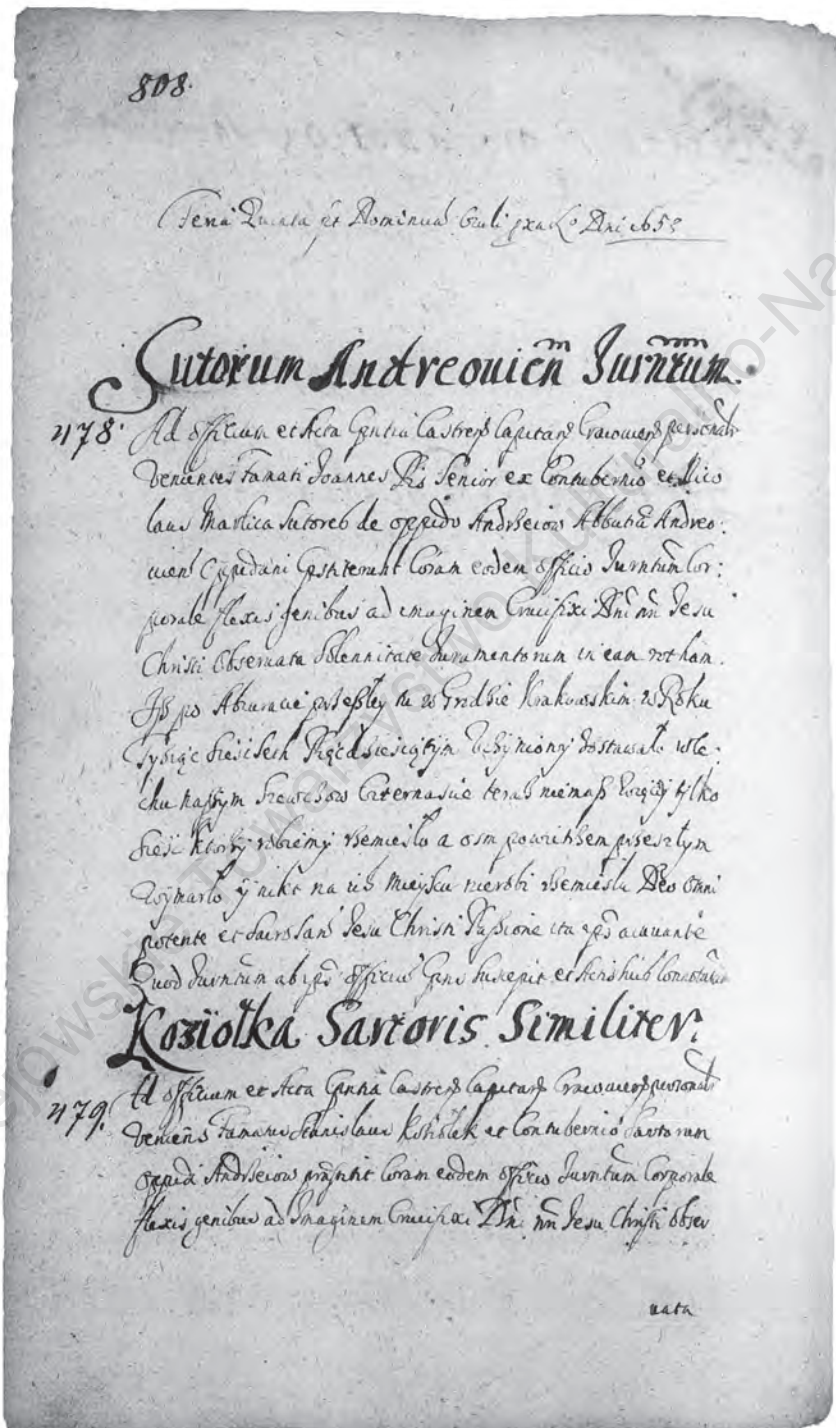 808.
Feria Quinta pt Dominicā Oculi Dni 165
Sutorum Andreouien̄ Jurn̄tum.
478. Ad officium et Acta Pntia Castren Capitan Cracouien personalr
Venientes Famati Joannes Senior ex Contubernio et Nico
laus Marlica Sutores de oppido Andrzeiow Abbatiæ Andreo:
uien Oppidani Pstiterunt Coram eodem officio Jurn̄tum Cor:
porale flexis genibus ad imaginem Crucifixi Dni nri Jesu
Christi Obseruata Solennitate Juramentorum in eam rotham.
Jż po Abiuracie przeszłey tu w Grodzie Krakowskim w Roku
Tysiąc Sześcset Pięcdziesiątym Vczyniony dostawało wce:
chu naszym Szewcszow Czternascie teraz niemasz tylko
sześc ktorzy robiemy rzemiesło a osm powietrzem przeszłym
Wymarło y nikt na ich mieyscu nierobi rzemiesła Deo omni
potente et Sacrosan Jesu Christi Passione ita eps adiuuante
Quod Jurn̄tum ab ipsis officiu Pns suscepit et Actis suis Connotauit
Koziołka Sartoris Similiter.
479. Ad officium et Acta Pntia Castren Capitan Cracouien personalr
Veniens Famatus Stanislaus Koziołek ex Contubernio Sartorum
oppidi Andrzeiow præstitit Coram eodem officio Jurn̄tum Corporale
flexis genibus ad Imaginem Crucifixi Dni nri Jesu Christi Obser
uata